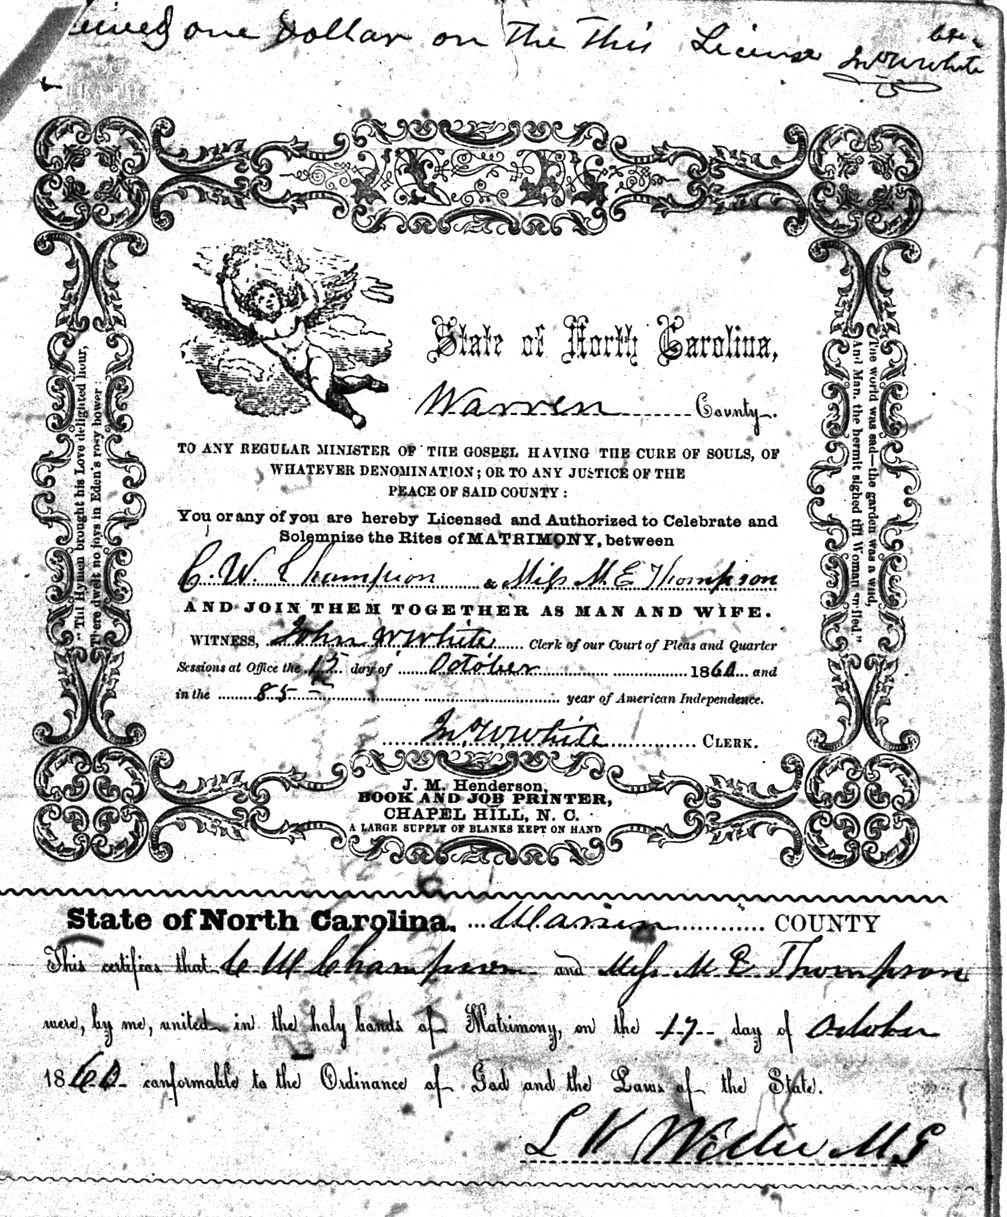 one Dollar on the This License
Jno W White
State of North Carolina,
Warren County.
TO ANY REGULAR MINISTER OF THE GOSPEL HAVING THE CURE OF SOULS, OF
WHATEVER DENOMINATION; OR TO ANY JUSTICE OF THE
PEACE OF SAID COUNTY:
You or any of you are hereby Licensed and Authorized to Celebrate and
Solemnize the Rites of MATRIMONY, between
C. W. Champion & Miss M. E Thompson
AND JOIN THEM TOGETHER AS MAN AND WIFE.
WITNESS, John W White Clerk of our Court of Pleas and Quarter
Sessions at Office the day of October 1860 and
in the 85 year of American Independence.
Jno W White CLERK.
"Till Hymen brought his Love delighted hour,
There dwelt no joys in Eden's rosy bower:
The world was sad—the garden was a wild,
And Man, the hermit sighed till Woman smiled."
J. M. Henderson,
BOOK AND JOB PRINTER,
CHAPEL HILL, N. C.
A LARGE SUPPLY OF BLANKS KEPT ON HAND
State of North Carolina. Warren COUNTY
This certifies that C W Champion and Miss M E Thompson
were, by me, united in the holy bands of Matrimony, on the 17 day of October
1860 conformable to the Ordinance of God and the Laws of the State.
L K Willie M G